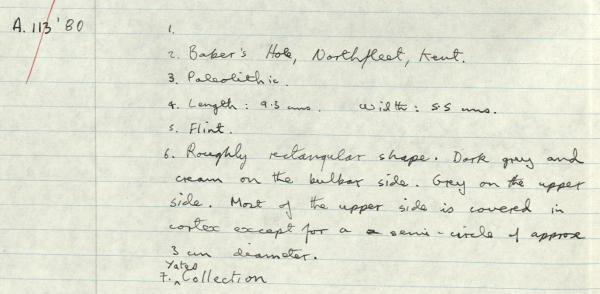 A. 113 '80
1.
2. Baker's Hole, Northfleet, Kent.
3. Paleolithic.
4. Length: 9.3 cms. Width: 5.5 cms.
5. Flint.
6. Roughly rectangular shape. Dark grey and
cream on the bulbar side. Grey on the upper
side. Most of the upper side is covered in
cortex except for a semi-circle of approx
3 cm diameter.
7. Yates Collection